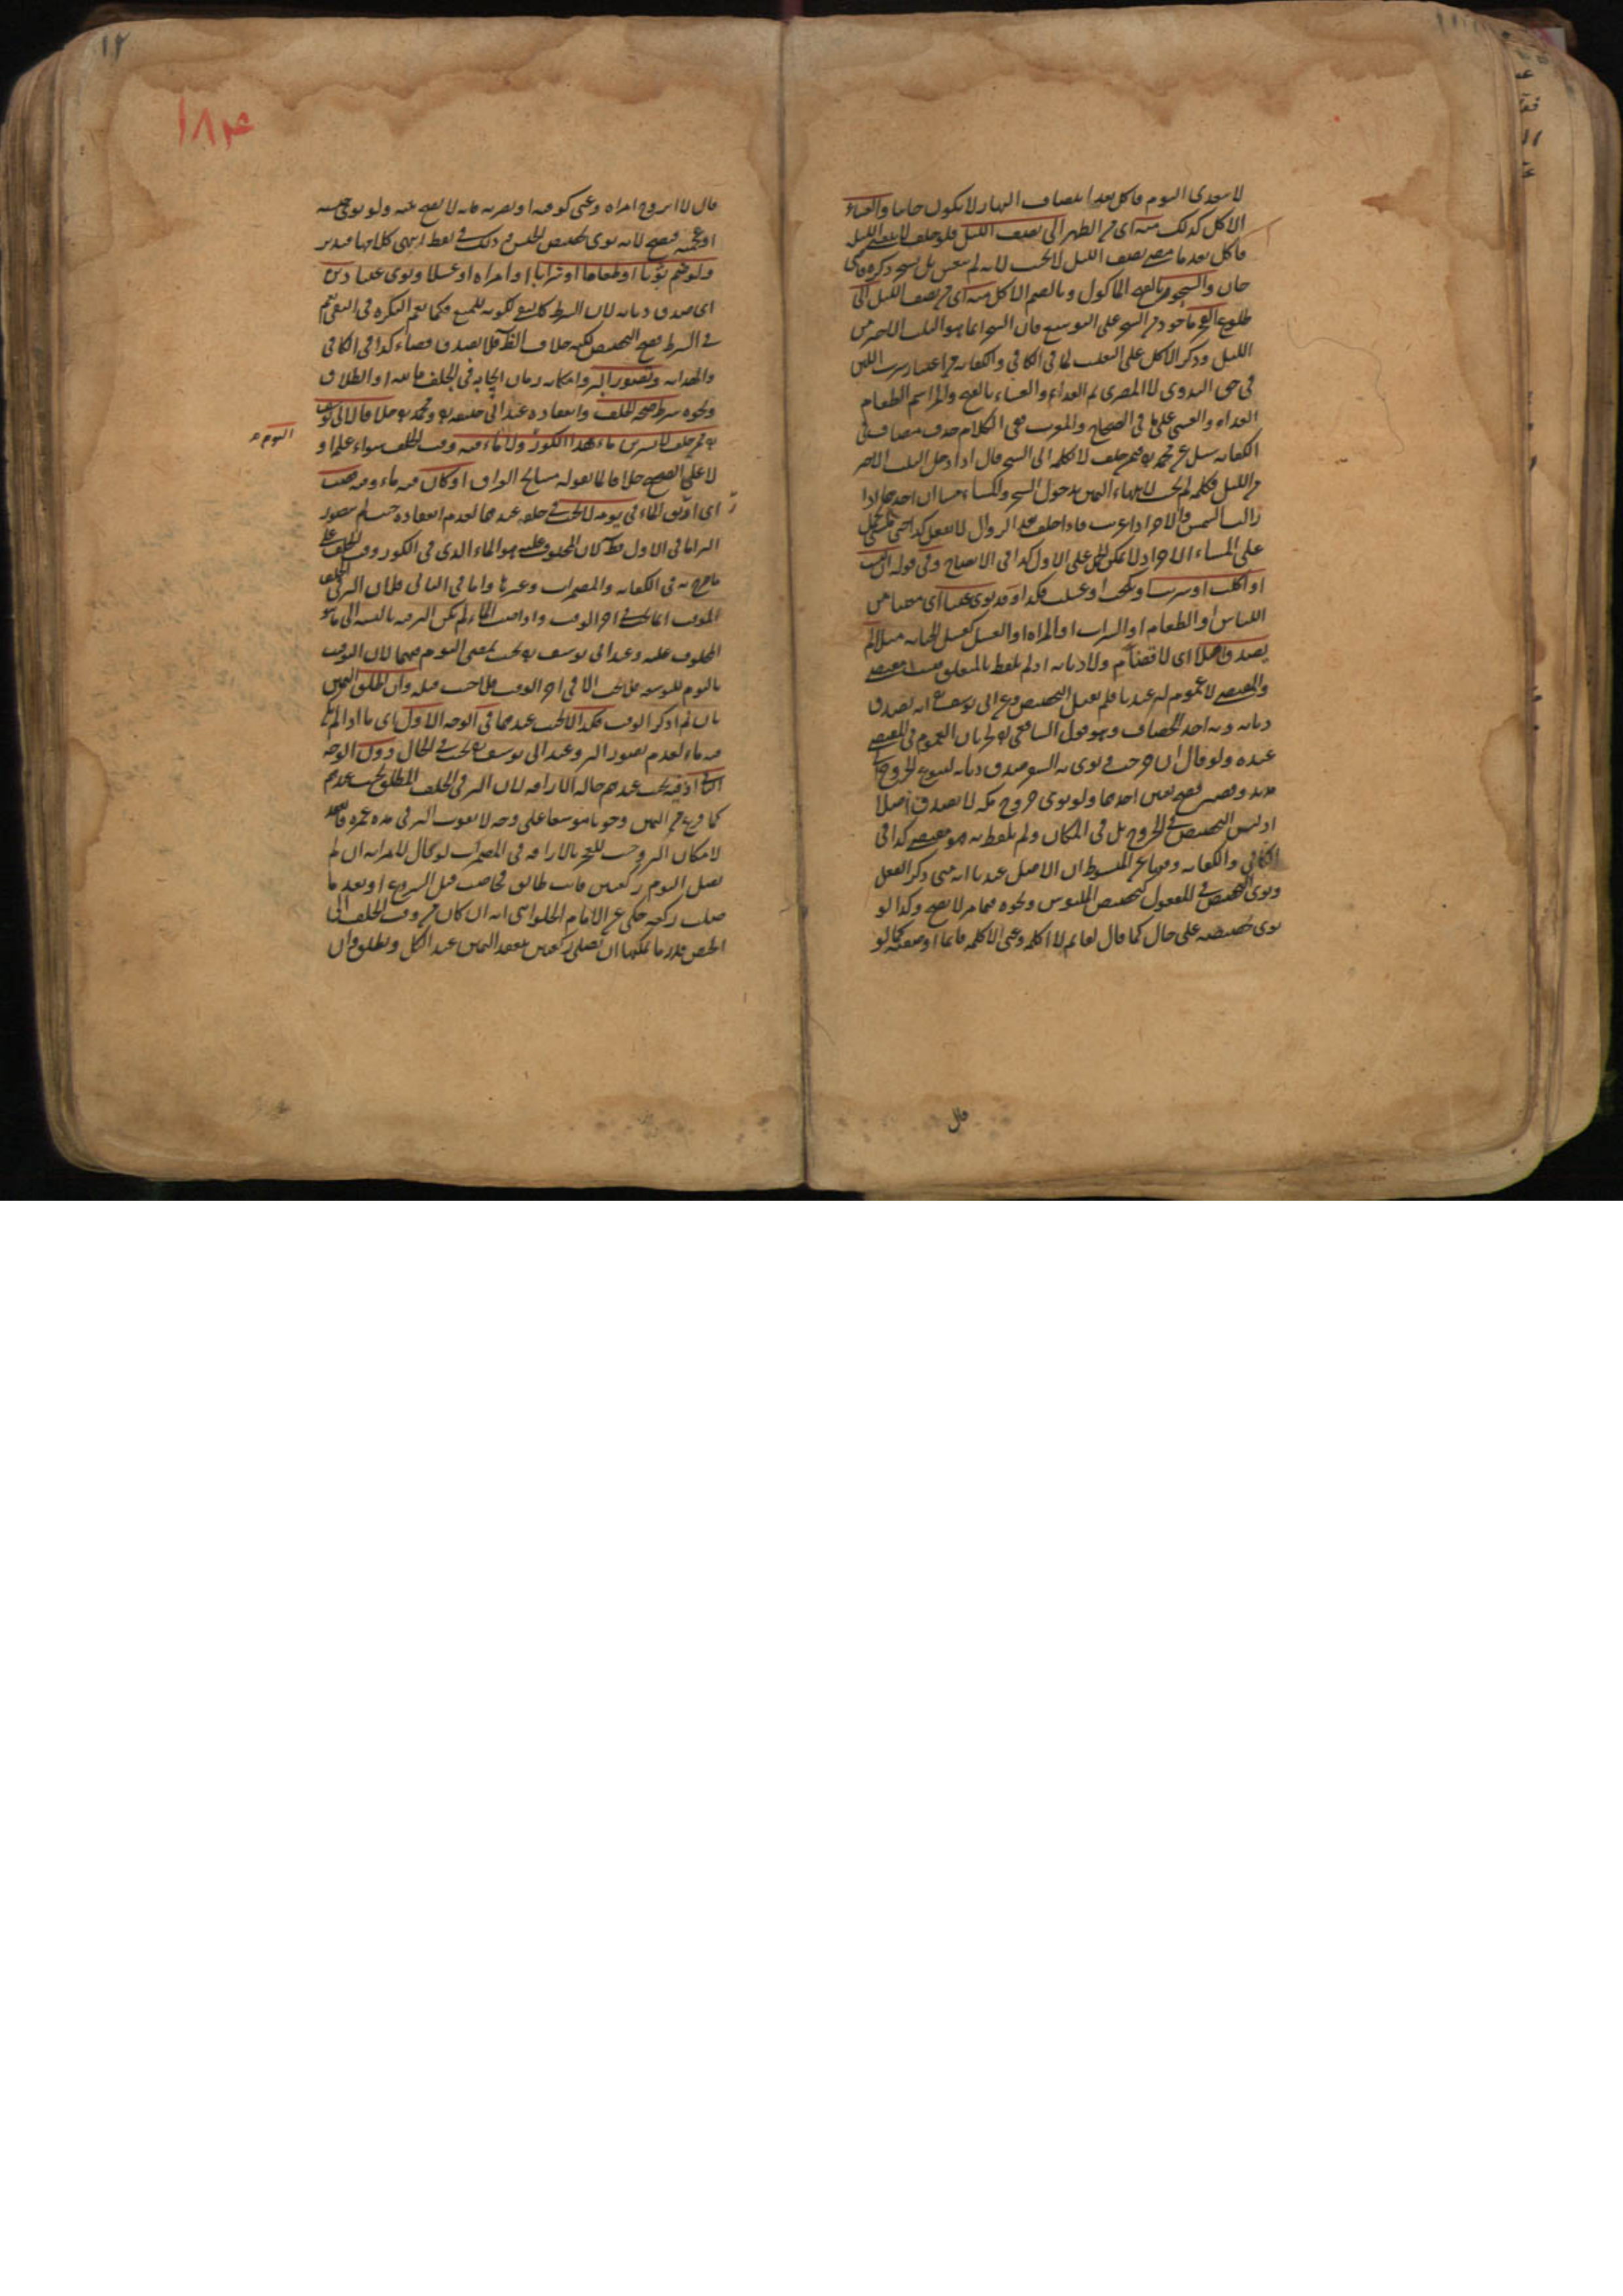 لا يتغدى اليوم فاكل بعد انتصاف النهار لا يكون حانثا والعشاء
الاكل كذلك منه اى من الظهر الى نصف الليل فلو حلف لا يتعشى الليل
فاكل بعد ما مضى نصف الليل لا يحنث لانه لم يتعش بل تسحر
حان والسحور بالفتح الماكول وبالضم الاكل منه اى من نصف الليل الى
طلوع الفجر ماخوذ من السحر على التوسع فان السحر انما هو الثلث الاخير من
الليل وذكر الاكل على التغليب كما فى الكافى والكفاية اعتبار شرب اللبن
فى حق البدوى لا المصرى ثم الغداء والعشاء بالفتح والمد اسم لطعام
الغداة والعشى على ما فى الصحاح والمغرب ففى الكلام حذف مضاف وفى
الكفاية سئل عن محمد رح عمن حلف لا اكلمه الى السحر قال اذا دخل الثلث الاخير
من الليل فكلمه لم يحنث لانتهاء اليمين بدخول السحر والمساء مساءان احدهما اذا
زالت الشمس والاخر اذا غربت فاذا حلف بعد الزوال لا يفعل كذا حتى يمسى يحمل
على المساء الاخر اذ لا يمكن حمله على الاول كذا فى الايضاح وفى قوله ان لبست
او اكلت او شربت او نكحت او غسلت فكذا وقد نوى عينا اى معينا من
اللباس او الطعام او الشراب او المراة او الغسل كغسل الجنابة مثلا لم
يصدق اصلا اى لا قضاء ولا ديانة اذ لم يلفظ بالمتعلق مقتضى
والمقتضى لا عموم له عندنا فلم يقبل التخصيص وعن ابى يوسف رح انه يصدق
ديانة وبه اخذ الخصاف وهو قول الشافعى رح لان العموم فى المقتضى
عنده ولو قال ان خرجت ونوى به السفر صدق ديانة لتنوع الخروج الى
مديد وقصير فصح تعيين احدهما ولو نوى خروج مكة لا يصدق اصلا
اذ ليس التخصيص فى الخروج بل فى المكان ولم يلفظ به فهو مقتضى كذا فى
الكافى والكفاية وفيها عن المبسوط ان الاصل عندنا انه متى ذكر الفعل
ونوى التخصيص فى المفعول كتخصيص الملبوس ونحوه مما مر لا يصح وكذا لو
نوى تخصيصه على حال كما قال لقائم لا اكلمه وعنى لا اكلمه قائما او صفة كما لو
قال
١٢
١٨٣
قال لا اتزوج امراة وعنى كوفية او بصرية فانه لا يصح نيته ولو نوى حبشية
او عجمية فيصح لانه نوى تخصيص الجنس وذلك فى لفظ انتهى كلامها فتدبر
ولو ضم ثوبا او طعاما او شرابا او امراة او غسلا ونوى عينا دين
اى صدق ديانة لان الشرط كالنفى لكونه للمنع فكما تعم النكرة فى النفى تعم
فى الشرط فصح التخصيص لكنه خلاف الظاهر فلا يصدق قضاء كذا فى الكافى
والهداية وتصور البر وامكانه زمان ايجابه فى الحلف بالله او الطلاق
ونحوه شرط صحة الحلف وانعقاده عند ابى حنيفة رح ومحمد رح خلافا لابى يوسف
رح فمن حلف لاشربن ماء هذا الكوز ولا ماء فيه وقت الحلف سواء علم او
اليوم صح
لا على الصحيح خلافا لما يقوله مشايخ العراق او كان فيه ماء وقد صب
اى اريق الماء فى يومه لا يحنث فى حلفه عندهما لعدم انعقاده حيث لم يتصور
البر اما فى الاول فظ لان المحلوف عليه هو الماء الذى فى الكوز وقت الحلف على
ما صرح به فى الكفاية والمضمرات وغيرها واما فى الثانى فلان البر فى الحلف
الموقت انما يجب فى اخر الوقت واذا صب الماء لم يمكن البر فيه بالنسبة الى ما هو
المحلوف عليه وعند ابى يوسف رح يحنث بمضى اليوم فيهما لان التوقيت
باليوم للتوسعة فلا يحنث الا فى اخر الوقت فلا حنث قبله وان اطلق اليمين
بان لم يذكر الوقت فكذا لا يحنث عندهما فى الوجه الاول اى ما اذا لم يكن
فيه ماء لعدم تصور البر وعند ابى يوسف رح يحنث فى الحال دون الوجه
الثانى اذ فيه يحنث عندهم حالة الاراقة لان البر فى الحلف المطلق يجب عندهم
كما فرغ من اليمين وجوبا موسعا على وجه لا يفوت البر فى مدة عمره فانعقد
لامكان البر وحنث للعجز بالاراقة فى المضمرات لو قال لامراته ان لم
تصل اليوم ركعتين فانت طالق فحاضت قبل الشروع او بعد ما
صلت ركعة حكى عن الامام الحلوانى انه ان كان من وقت الحلف الى
الحيض قدر ما يمكنها ان تصلى ركعتين ينعقد اليمين عند الكل وتطلق وان